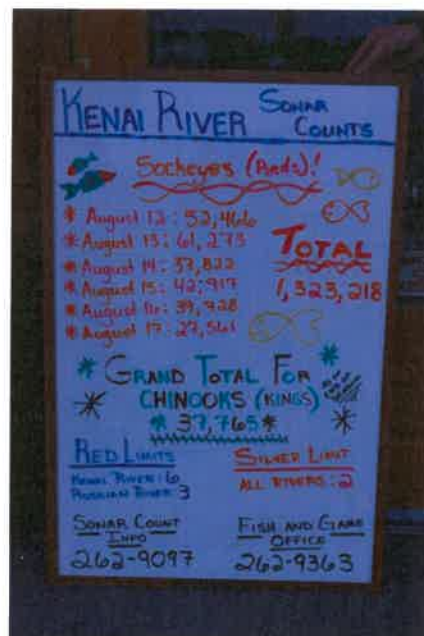 KENAI RIVER SONAR COUNTS
Sockeyes (Reds)!
* August 12: 52,466
* August 13: 61,273
* August 14: 37,822
* August 15: 42,917
* August 16: 39,928
* August 17: 27,561
TOTAL
1,323,218
* GRAND TOTAL FOR *
* CHINOOKS (KINGS) *
* 37,765 *
RED LIMITS
KENAI RIVER: 6
RUSSIAN RIVER: 3
SILVER LIMIT
ALL RIVERS: 2
SONAR COUNT
INFO
262-9097
FISH AND GAME
OFFICE
262-9363